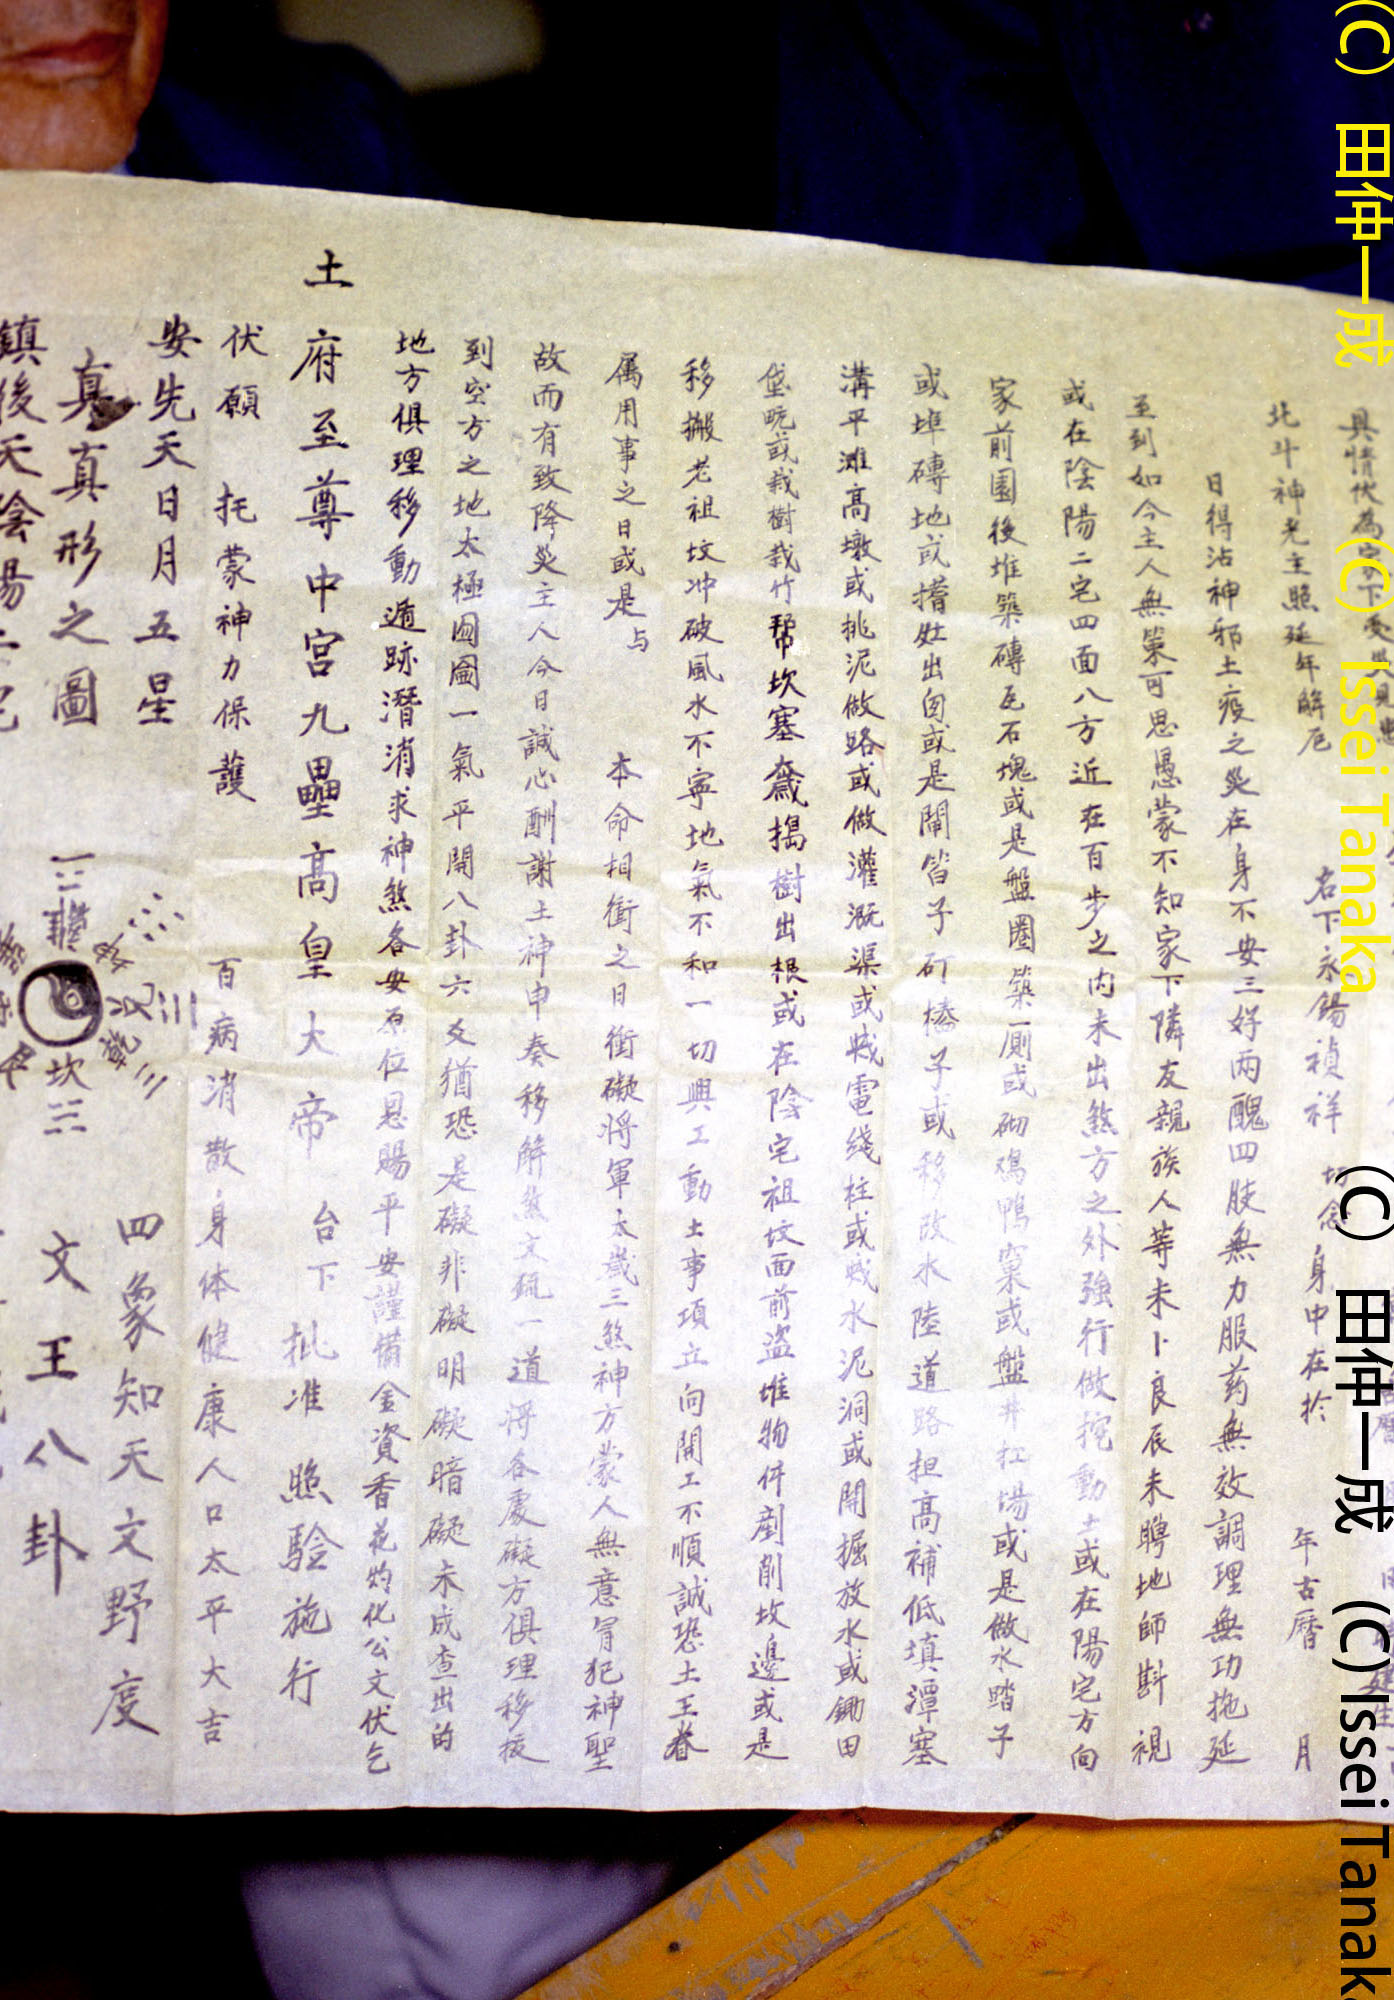 具情伏為家下受災見患
北斗神光主照延年解厄 右下永錫禎祥 切念 身中在於 年古曆 月
日得沾神邪土疫之災在身不安三好兩醜四肢無力服药無效調理無功拖延
至到如今主人無策可思愚蒙不知家下隣友親族人等未卜良辰未聘地師斟視
或在陰陽二宅四面八方近在百步之内未出煞方之外強行做挖動土或在陽宅方向
家前園後堆築磚瓦石塊或是盤圈築厠或砌鴉鴨窠或盤井扛場或是做水踏子
或埠磚地或搢灶出囱或是闡皆子矴橋子或移改水陸道路担高補低填潭塞
溝平灘高墩或挑泥做路或做灌溉渠或㘽電綫柱或㘽水泥洞或開掘放水或鋤田
垡畹或栽樹栽竹幫坎塞薉搗樹出根或在陰宅祖坟面前盗堆物件剷削坟邊或是
移搬老祖坟冲破風水不寧地氣不和一切興工動土事項立向開工不順誠恐土王眷
属用事之日或是与 本命相衝之日衝礙將軍太歲三煞神方蒙人無意冒犯神聖
故而有致降災主人今日誠心酬謝土神申奏移解煞文疏一道將各處礙方俱理移掖
到空方之地太極囫圇一氣平開八卦六爻猶恐是礙非礙明礙暗礙未成查出的
地方俱理移動遁跡潛消求神煞各安原位恩賜平安謹備金資香花灼化公文伏乞
土府至尊中宮九壘高皇大帝 台下批准 照驗施行
伏願 托蒙神力保護 百病消散身体健康人口太平大吉
安先天日月五星 四象知天文野度
真真形之圖 離 坎 乾 文王八卦
鎮後天陰陽二宅
(C) 田仲一成 (C) Issei Tanaka (C) 田仲一成 (C) Issei Tanaka